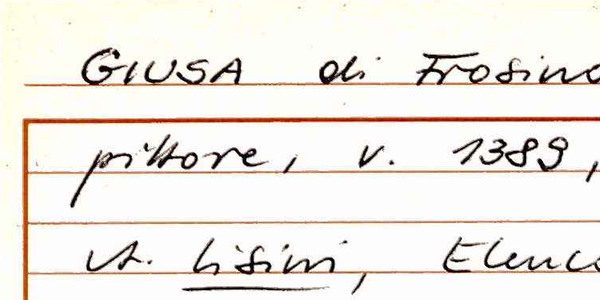 GIUSA di Frosino
pittore, v. 1389,
vd. Lisini, Elenco